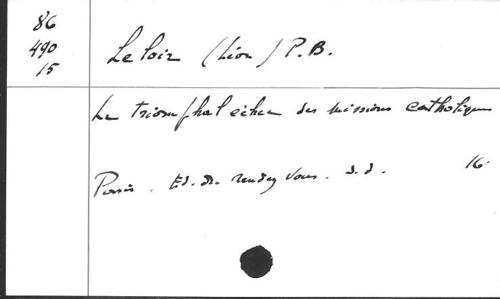 86
490
15
Leloir (Léon) P.B.
Le triomphal échec des missions catholiques
Paris. Ed. du rendez vous. s.d. 16.